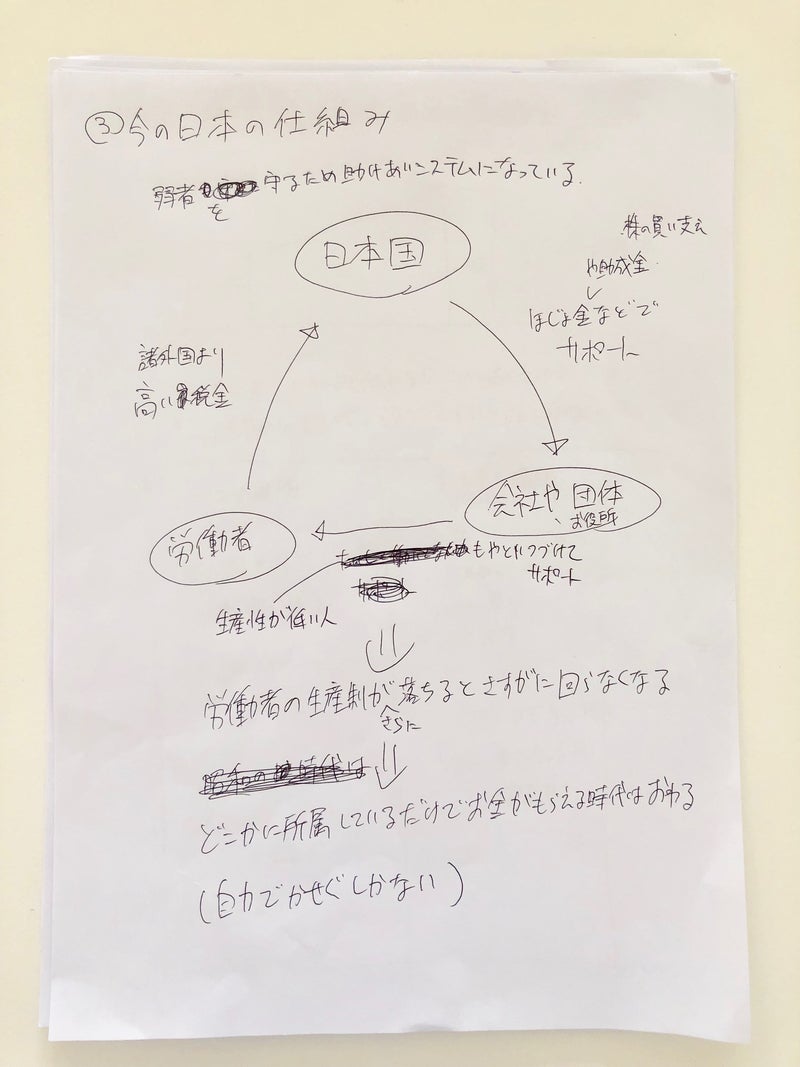 ③今の日本の仕組み
弱者を守るため助けあいシステムになっている.
日本国
株の買い支え
や助成金
ほじょ金などで
サポート
諸外国より
高い税金
会社や団体
、お役所
労働者
もやといつづけて
サポート
生産性が低い人
労働者の生産制がさらに落ちるとさすがに回らなくなる
どこかに所属しているだけでお金がもらえる時代はおわる
(自力でかせぐしかない)